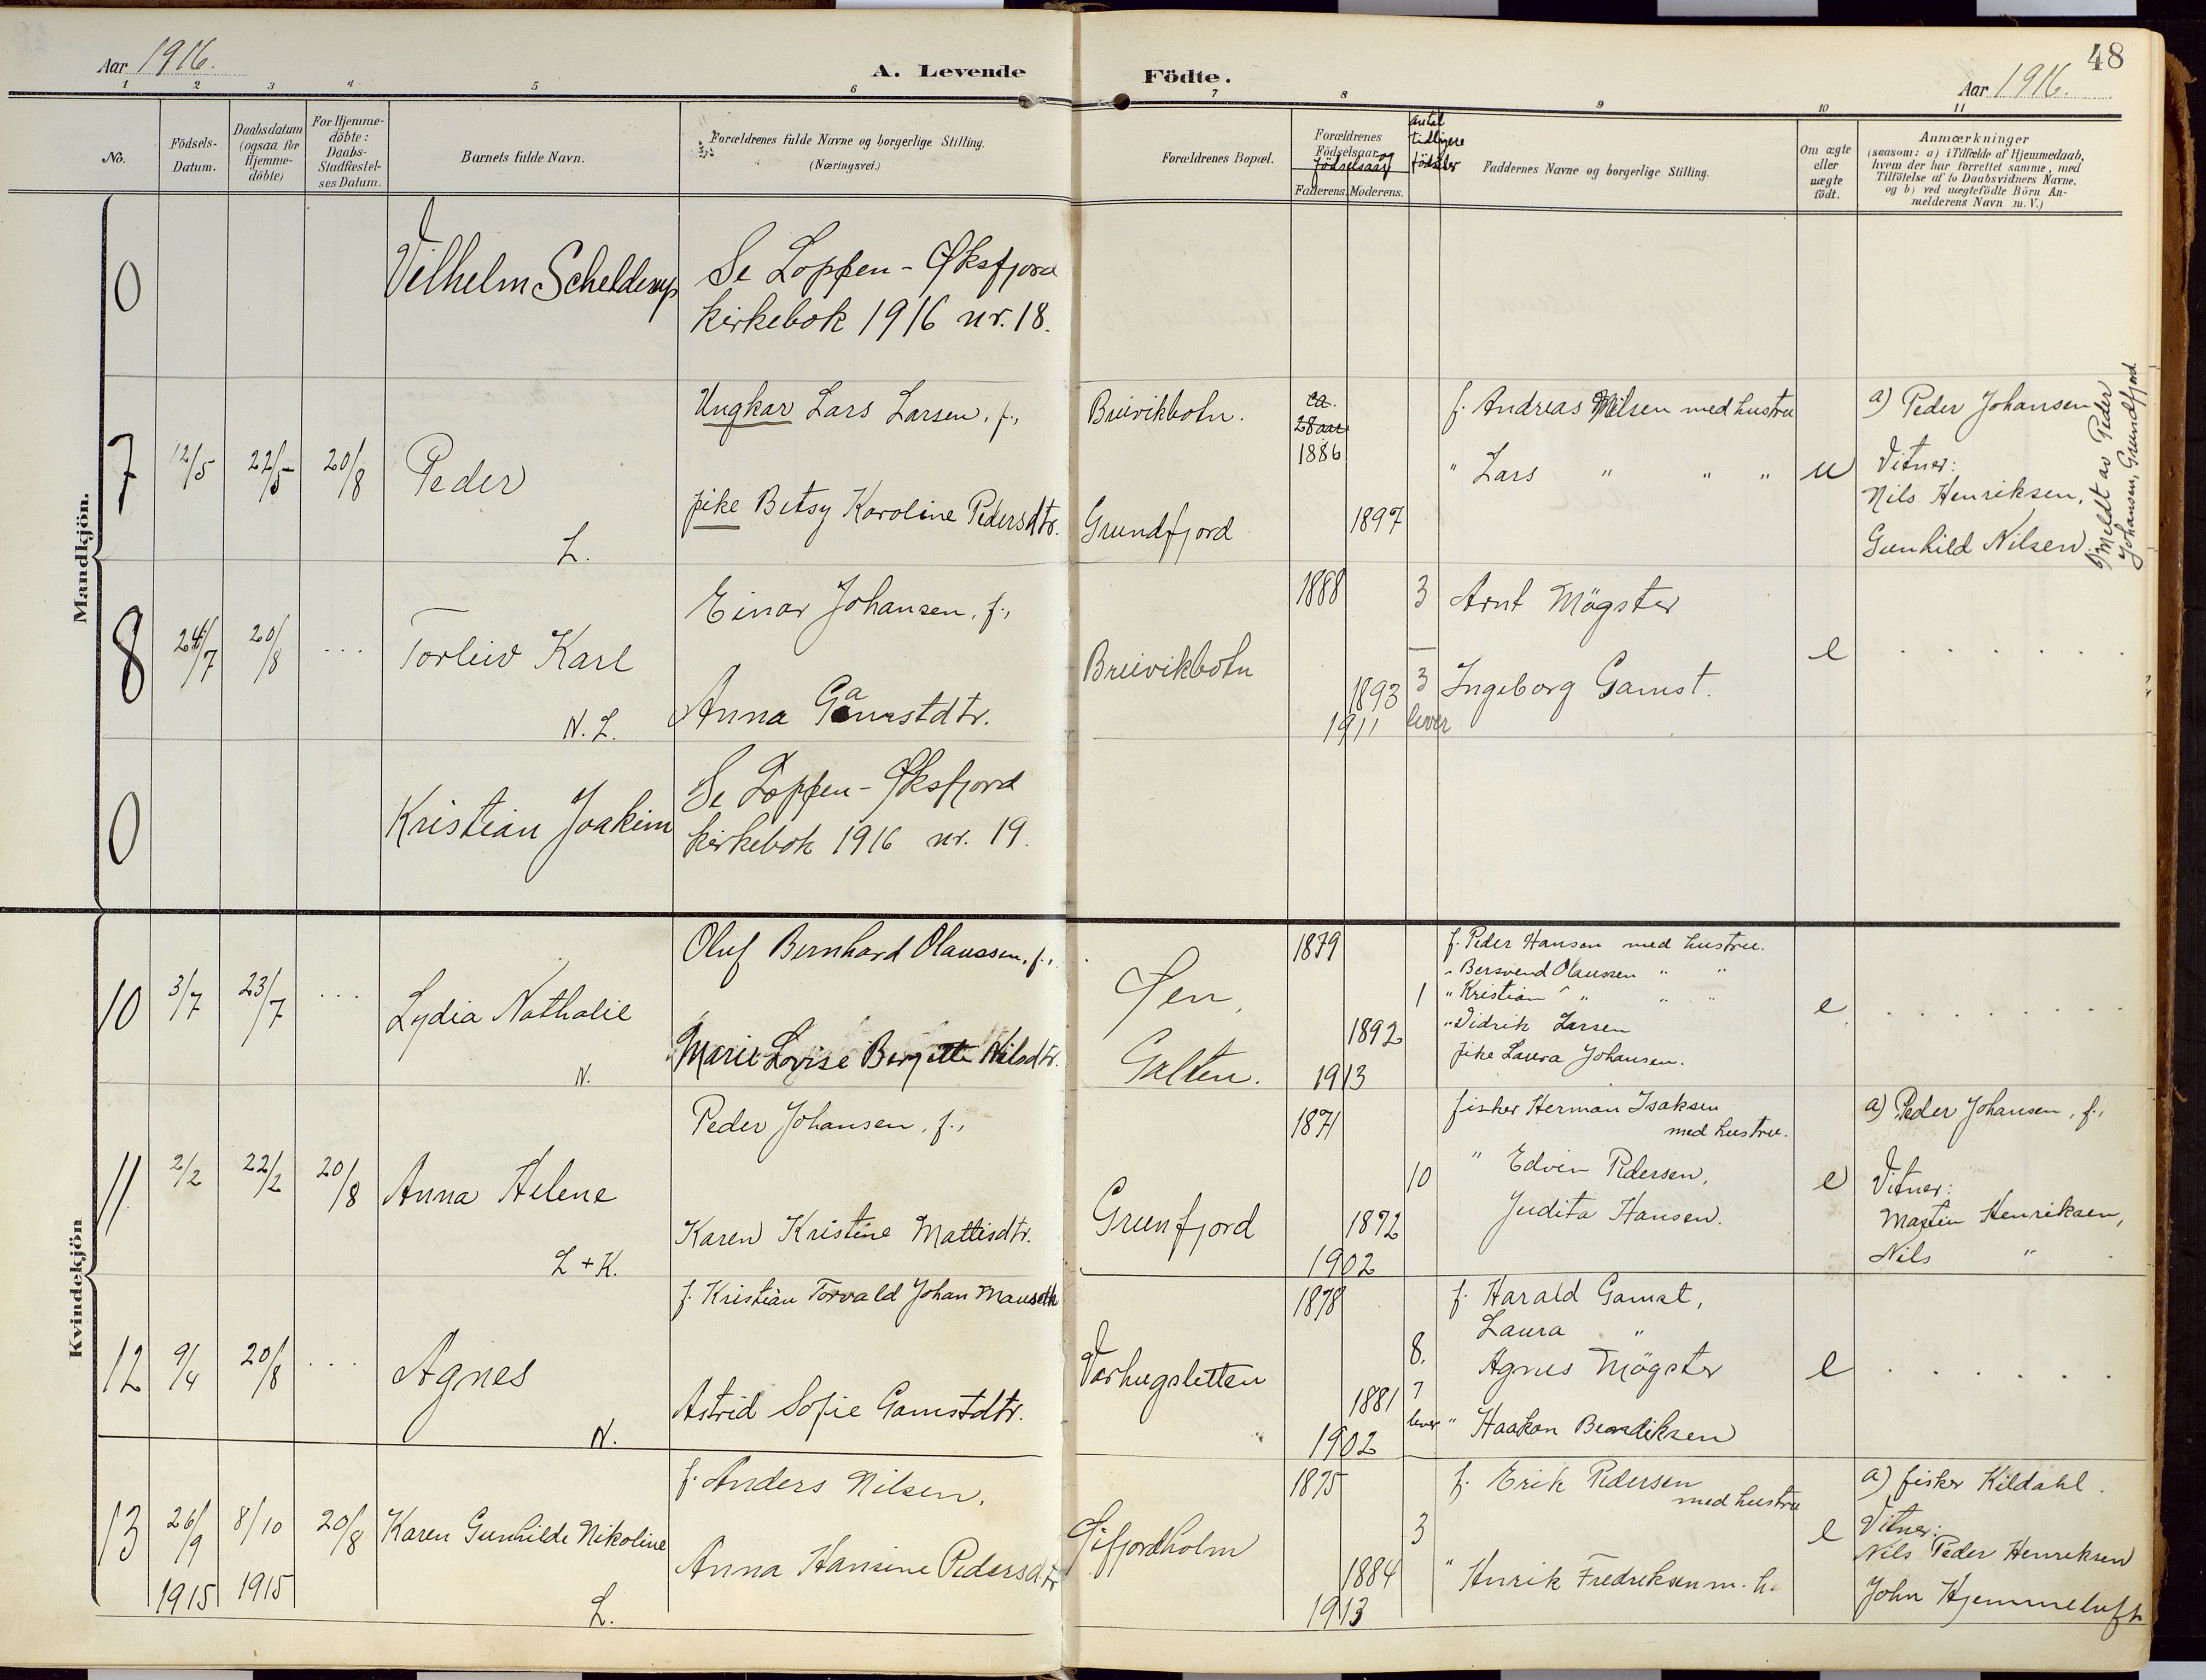 48
Aar 1916.
A. Levende
Födte.
Aar 1916.
1 2 3 4 5 6 7 8 9 10 11
No.
Födsels-
Datum.
Daabsdatum
(ogsaa for
Hjemme-
döbte)
For Hjemme-
döbte:
Daabs-
Stadfæstel-
ses Datum.
Barnets fulde Navn.
Forældrenes fulde Navne og borgerlige Stilling.
(Næringsvei.)
Forældrenes Bopæl.
Forældrenes
Födselsaar og
Faderens. Moderens.
antal
tidligere
födsler
Faddernes Navne og borgerlige Stilling.
Om ægte
eller
uægte
födt.
Anmærkninger
(saasom: a) i Tilfælde af Hjemmedaab,
hvem der har forrettet samme, med
Tilföielse af to Daabsvidners Navne,
og b) ved uægtefödte Börn An-
melderens Navn m. V.)
Mandkjön.
0
Vilhelm Schelderup
Se Loppen - Øksfjord
kirkebok 1916 nr. 18.
7
12/5
22/5
20/8
Peder
L.
Ungkar Lars Larsen, f.,
pike Betsy Karoline Pedersdtr.
Breivikbotn.
Grundfjord
ca.
28 aar
1886
1897
f. Andreas Nilsen med hustru
" Lars " " "
u
a) Peder Johansen
Vitner:
Nils Henriksen,
Gunhild Nilsen.
b) Meldt av Peder
Johansen, Grundfjord
8
24/7
20/8
. . .
Torleiv Karl
N. L.
Einar Johansen, f.,
Anna Gamstdtr.
Breivikbotn
1888
1893
1911
3
3
lever
Arnt Mögster
Ingeborg Gamst.
e
. . . . . . .
0
Kristian Joakim
Se Loppen - Øksfjord
kirkebok 1916 nr. 19.
Kvindekjön
10
3/7
23/7
. . .
Lydia Nathalie
N.
Oluf Bernhard Olaussen, f.,
Marie Lovise Bergitte Nilsdtr.
Galten.
1879
1892
1913
1
f. Peder Hansen med hustru.
" Bersvend Olaussen " "
" Kristian " " "
" Didrik Larsen
pike Laura Johansen.
e
. . . . . . . . .
11
2/2
22/2
20/8
Anna Helene
L + K.
Peder Johansen, f.,
Karen Kristine Mattisdtr.
Grunfjord
1871
1872
1902
10
fisker Herman Isaksen
med hustru.
" Edvin Pedersen,
Judita Hansen.
e
a) Peder Johansen, f.,
Vitner:
Martin Henriksen,
Nils "
12
9/4
20/8
. . .
Agnes
N.
f. Kristian Torvald Johan Mauseth
Astrid Sofie Gamstdtr.
Varhugsletten
1878
1881
1902
8.
7
lever
f. Harald Gamst,
Laura "
Agnes Mögster
" Haakon Bendiksen
e
. . . . . .
13
26/9
1915
8/10
1915
20/8
Karen Gunhilde Nikoline
L.
f. Anders Nilsen,
Anna Hansine Pedersdtr
Gifjordholm
1875
1884
1913
3
f. Erik Pedersen
med hustru
" Henrik Fredriksen m. h.
e
a) fisker Kildahl.
Vitner:
Nils Peder Henriksen
John Hjemmeluft